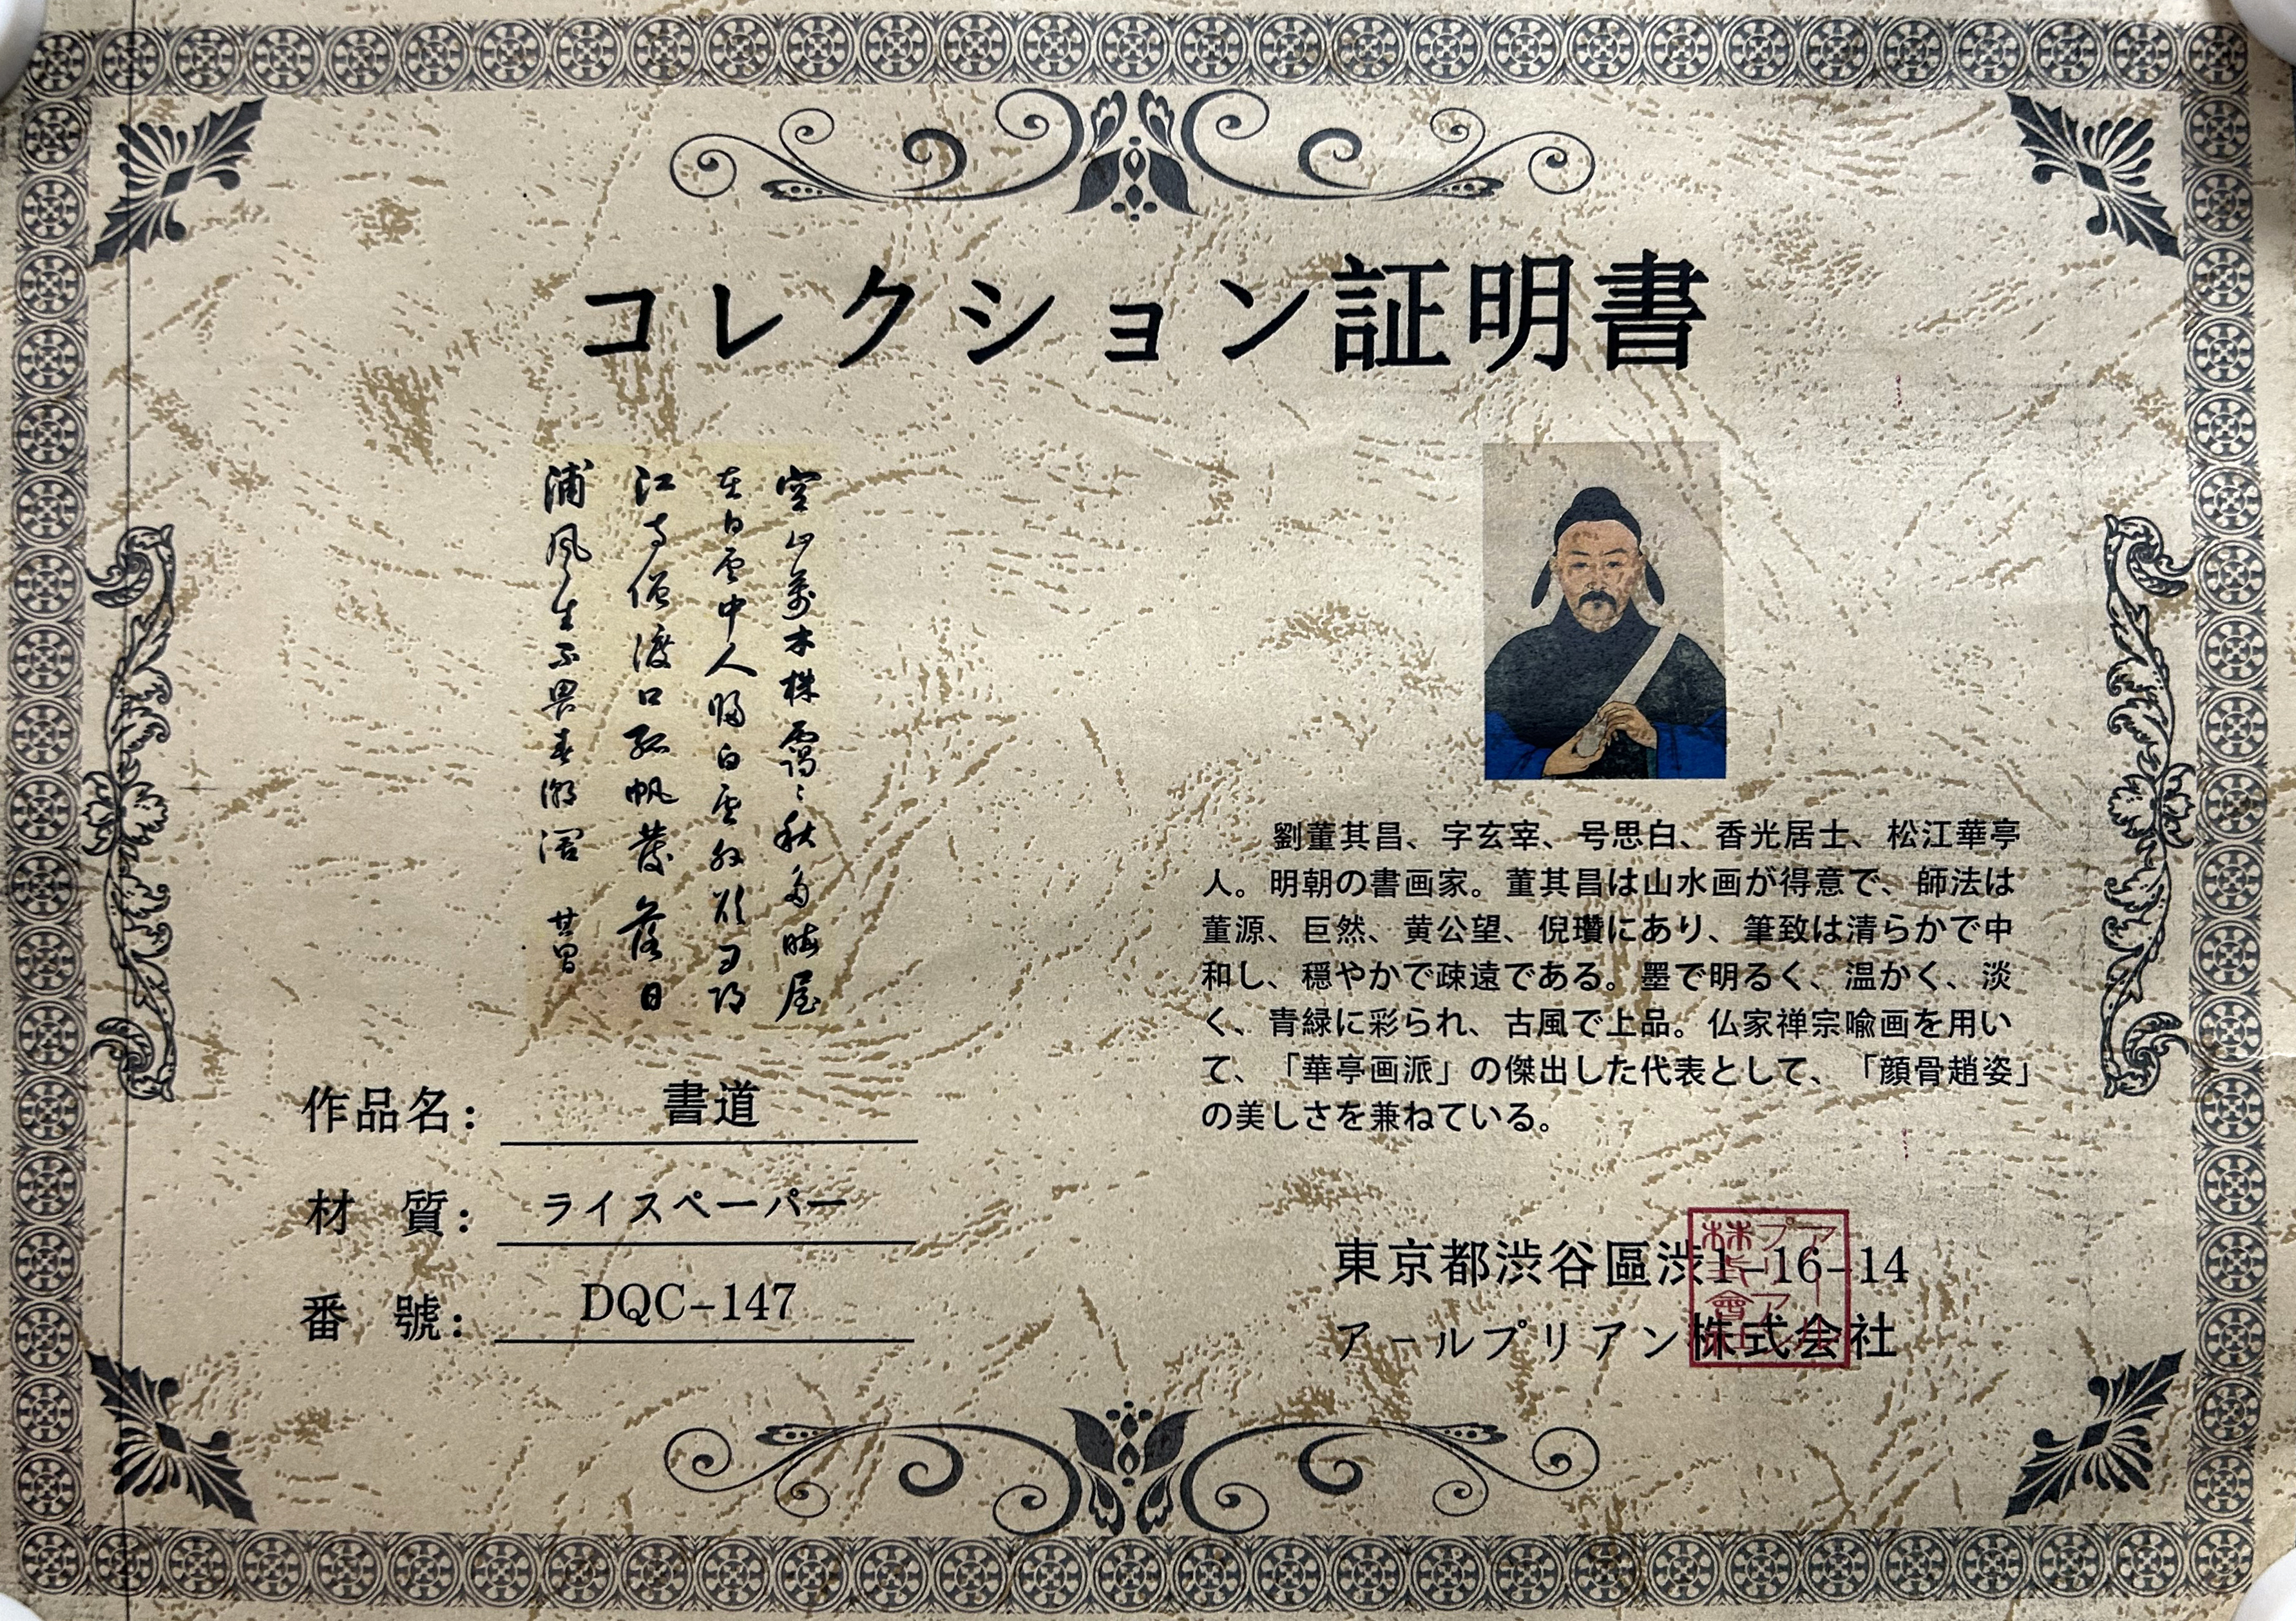 コレクション証明書
空山萬木株靄々秋多晦屋
在白雲中人歸白雲外欲
江寺僧渡口孤帆發落日
浦風生不畏春潮濶 其昌
劉董其昌、字玄宰、号思白、香光居士、松江華亭
人。明朝の書画家。董其昌は山水画が得意で、師法は
董源、巨然、黄公望、倪瓚にあり、筆致は清らかで中
和し、穏やかで疎遠である。墨で明るく、温かく、淡
く、青緑に彩られ、古風で上品。仏家禅宗喩画を用い
て、「華亭画派」の傑出した代表として、「顔骨趙姿」
の美しさを兼ねている。
作品名： 書道
材 質： ライスペーパー
番 號： DQC-147
東京都渋谷區渋1-16-14
アールプリアン株式会社